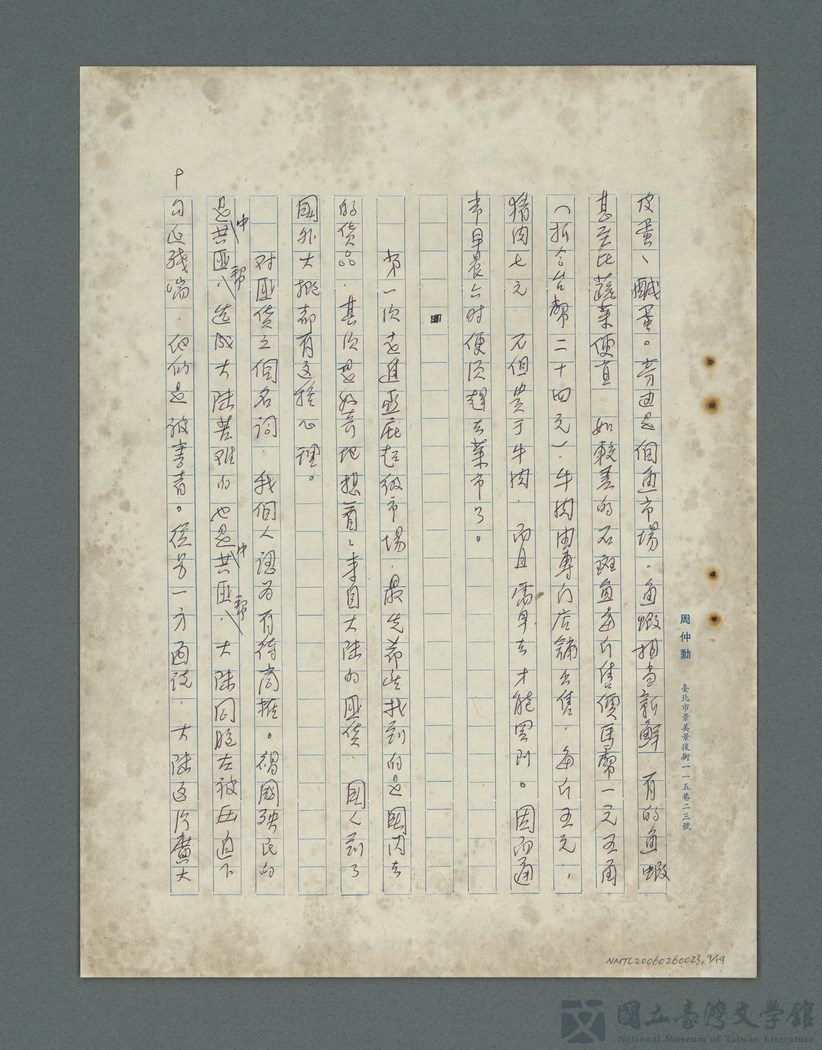 周仲勳
臺北市景美景後街一一五巷二三號
皮蛋、鹹蛋。旁邊是個魚市場．魚蝦相當新鮮　有的魚蝦
甚至比蔬菜便宜　如較美的石斑魚每斤售價馬幣一元五角
（折合台幣二十四元）．牛肉由專門店舖出售．每斤五元，
豬肉七元　不但貴于牛肉．而且需早去才能買到。因而通
常早晨六时便須趕去菜市了。
第一次走進亞庇超級市場．最先希望找到的是國內去
的貨品．其次是好奇地想看看來自大陸的匪貨．國人到了
國外大概都有這種心理。
对匪貨這個名詞．我個人認為有待商搉。禍國殃民的
是中共匪幫八造成大陸苦难的也是中共匪幫．大陸同胞在被压迫下
十
苟延殘喘．他們是被害者。從另一方面說．大陸這片廣大
NMTL20060260023, 9/19
國立臺灣文學館
National Museum of Taiwan Literature